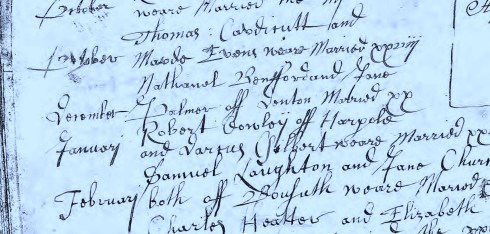 October weare Married the
Thomas Cardicutt and
October Maude Evens weare Married xxviij
Nathanel Benfford and Jane
December Palmer off Denton Maried xx
Robert Cowley off Harpole
January and Darcus Gilbert weare Married xx
Samuel Laughton and Jane Chur
February both off Bousuth weare Maried
Charles Heatter and Elizabeth
the xx